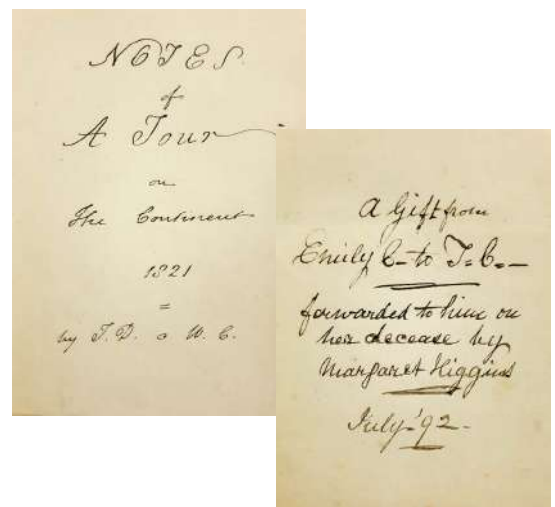 NOTES
of
A Tour
on
The Continent
1821
=
by T. D. & W. C.
A Gift from
Emily C- to T. C. -
forwarded to him on
her decease by
Margaret Higgins
July '92 -